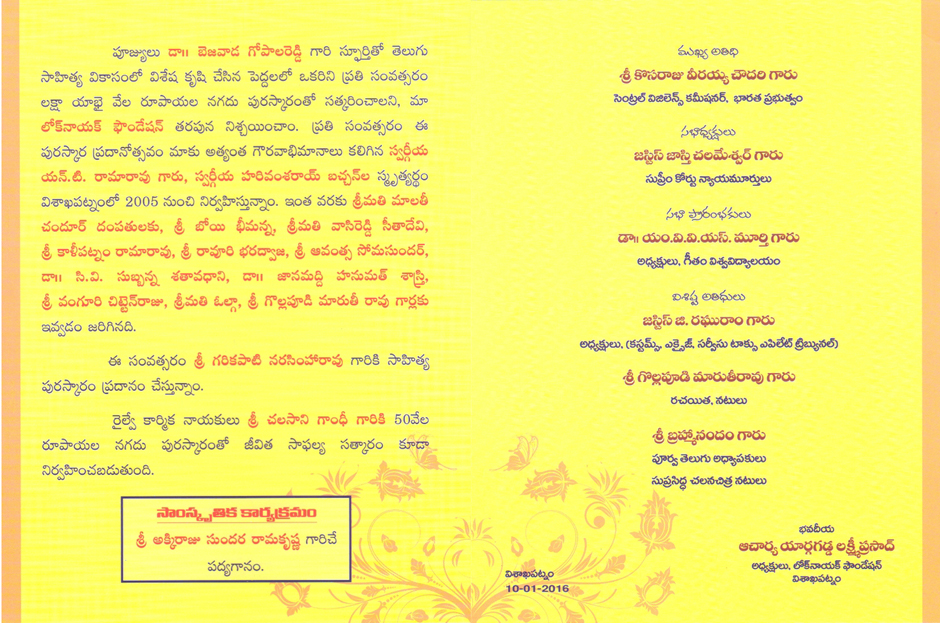 పూజ్యులు డా॥ బెజవాడ గోపాలరెడ్డి గారి స్ఫూర్తితో తెలుగు
సాహిత్య వికాసంలో విశేష కృషి చేసిన పెద్దలలో ఒకరిని ప్రతి సంవత్సరం
లక్షా యాభై వేల రూపాయల నగదు పురస్కారంతో సత్కరించాలని, మా
లోక్‌నాయక్ ఫౌండేషన్ తరపున నిశ్చయించాం. ప్రతి సంవత్సరం ఈ
పురస్కార ప్రదానోత్సవం మాకు అత్యంత గౌరవాభిమానాలు కలిగిన స్వర్గీయ
యన్.టి. రామారావు గారు, స్వర్గీయ హరివంశరాయ్ బచ్చన్‌ల స్మృత్యర్థం
విశాఖపట్నంలో 2005 నుంచి నిర్వహిస్తున్నాం. ఇంత వరకు శ్రీమతి మాలతీ
చందూర్ దంపతులకు, శ్రీ బోయి భీమన్న, శ్రీమతి వాసిరెడ్డి సీతాదేవి,
శ్రీ కాళీపట్నం రామారావు, శ్రీ రావూరి భరద్వాజ, శ్రీ ఆవంత్స సోమసుందర్,
డా॥ సి.వి. సుబ్బన్న శతావధాని, డా॥ జానమద్ది హనుమత్ శాస్త్రి,
శ్రీ వంగూరి చిట్టెన్‌రాజు, శ్రీమతి ఓల్గా, శ్రీ గొల్లపూడి మారుతీ రావు గార్లకు
ఇవ్వడం జరిగినది.
ఈ సంవత్సరం శ్రీ గరికపాటి నరసింహారావు గారికి సాహిత్య
పురస్కారం ప్రదానం చేస్తున్నాం.
రైల్వే కార్మిక నాయకులు శ్రీ చలసాని గాంధీ గారికి 50వేల
రూపాయల నగదు పురస్కారంతో జీవిత సాఫల్య సత్కారం కూడా
నిర్వహించబడుతుంది.
సాంస్కృతిక కార్యక్రమం
శ్రీ అక్కిరాజు సుందర రామకృష్ణ గారిచే
పద్యగానం.
ముఖ్య అతిథి
శ్రీ కొసరాజు వీరయ్య చౌదరి గారు
సెంట్రల్ విజిలెన్స్ కమీషనర్, భారత ప్రభుత్వం
సభాధ్యక్షులు
జస్టిస్ జాస్తి చలమేశ్వర్ గారు
సుప్రీం కోర్టు న్యాయమూర్తులు
సభా ప్రారంభకులు
డా॥ యం.వి.వి.యస్. మూర్తి గారు
అధ్యక్షులు, గీతం విశ్వవిద్యాలయం
విశిష్ట అతిథులు
జస్టిస్ జి. రఘురాం గారు
అధ్యక్షులు, (కస్టమ్స్, ఎక్సైజ్, సర్వీసు టాక్సు ఎపిలేట్ ట్రిబ్యునల్)
శ్రీ గొల్లపూడి మారుతీరావు గారు
రచయిత, నటులు
శ్రీ బ్రహ్మానందం గారు
పూర్వ తెలుగు అధ్యాపకులు
సుప్రసిద్ధ చలనచిత్ర నటులు
భవదీయ
ఆచార్య యార్లగడ్డ లక్ష్మీప్రసాద్
అధ్యక్షులు, లోక్‌నాయక్ ఫౌండేషన్
విశాఖపట్నం
విశాఖపట్నం
10-01-2016